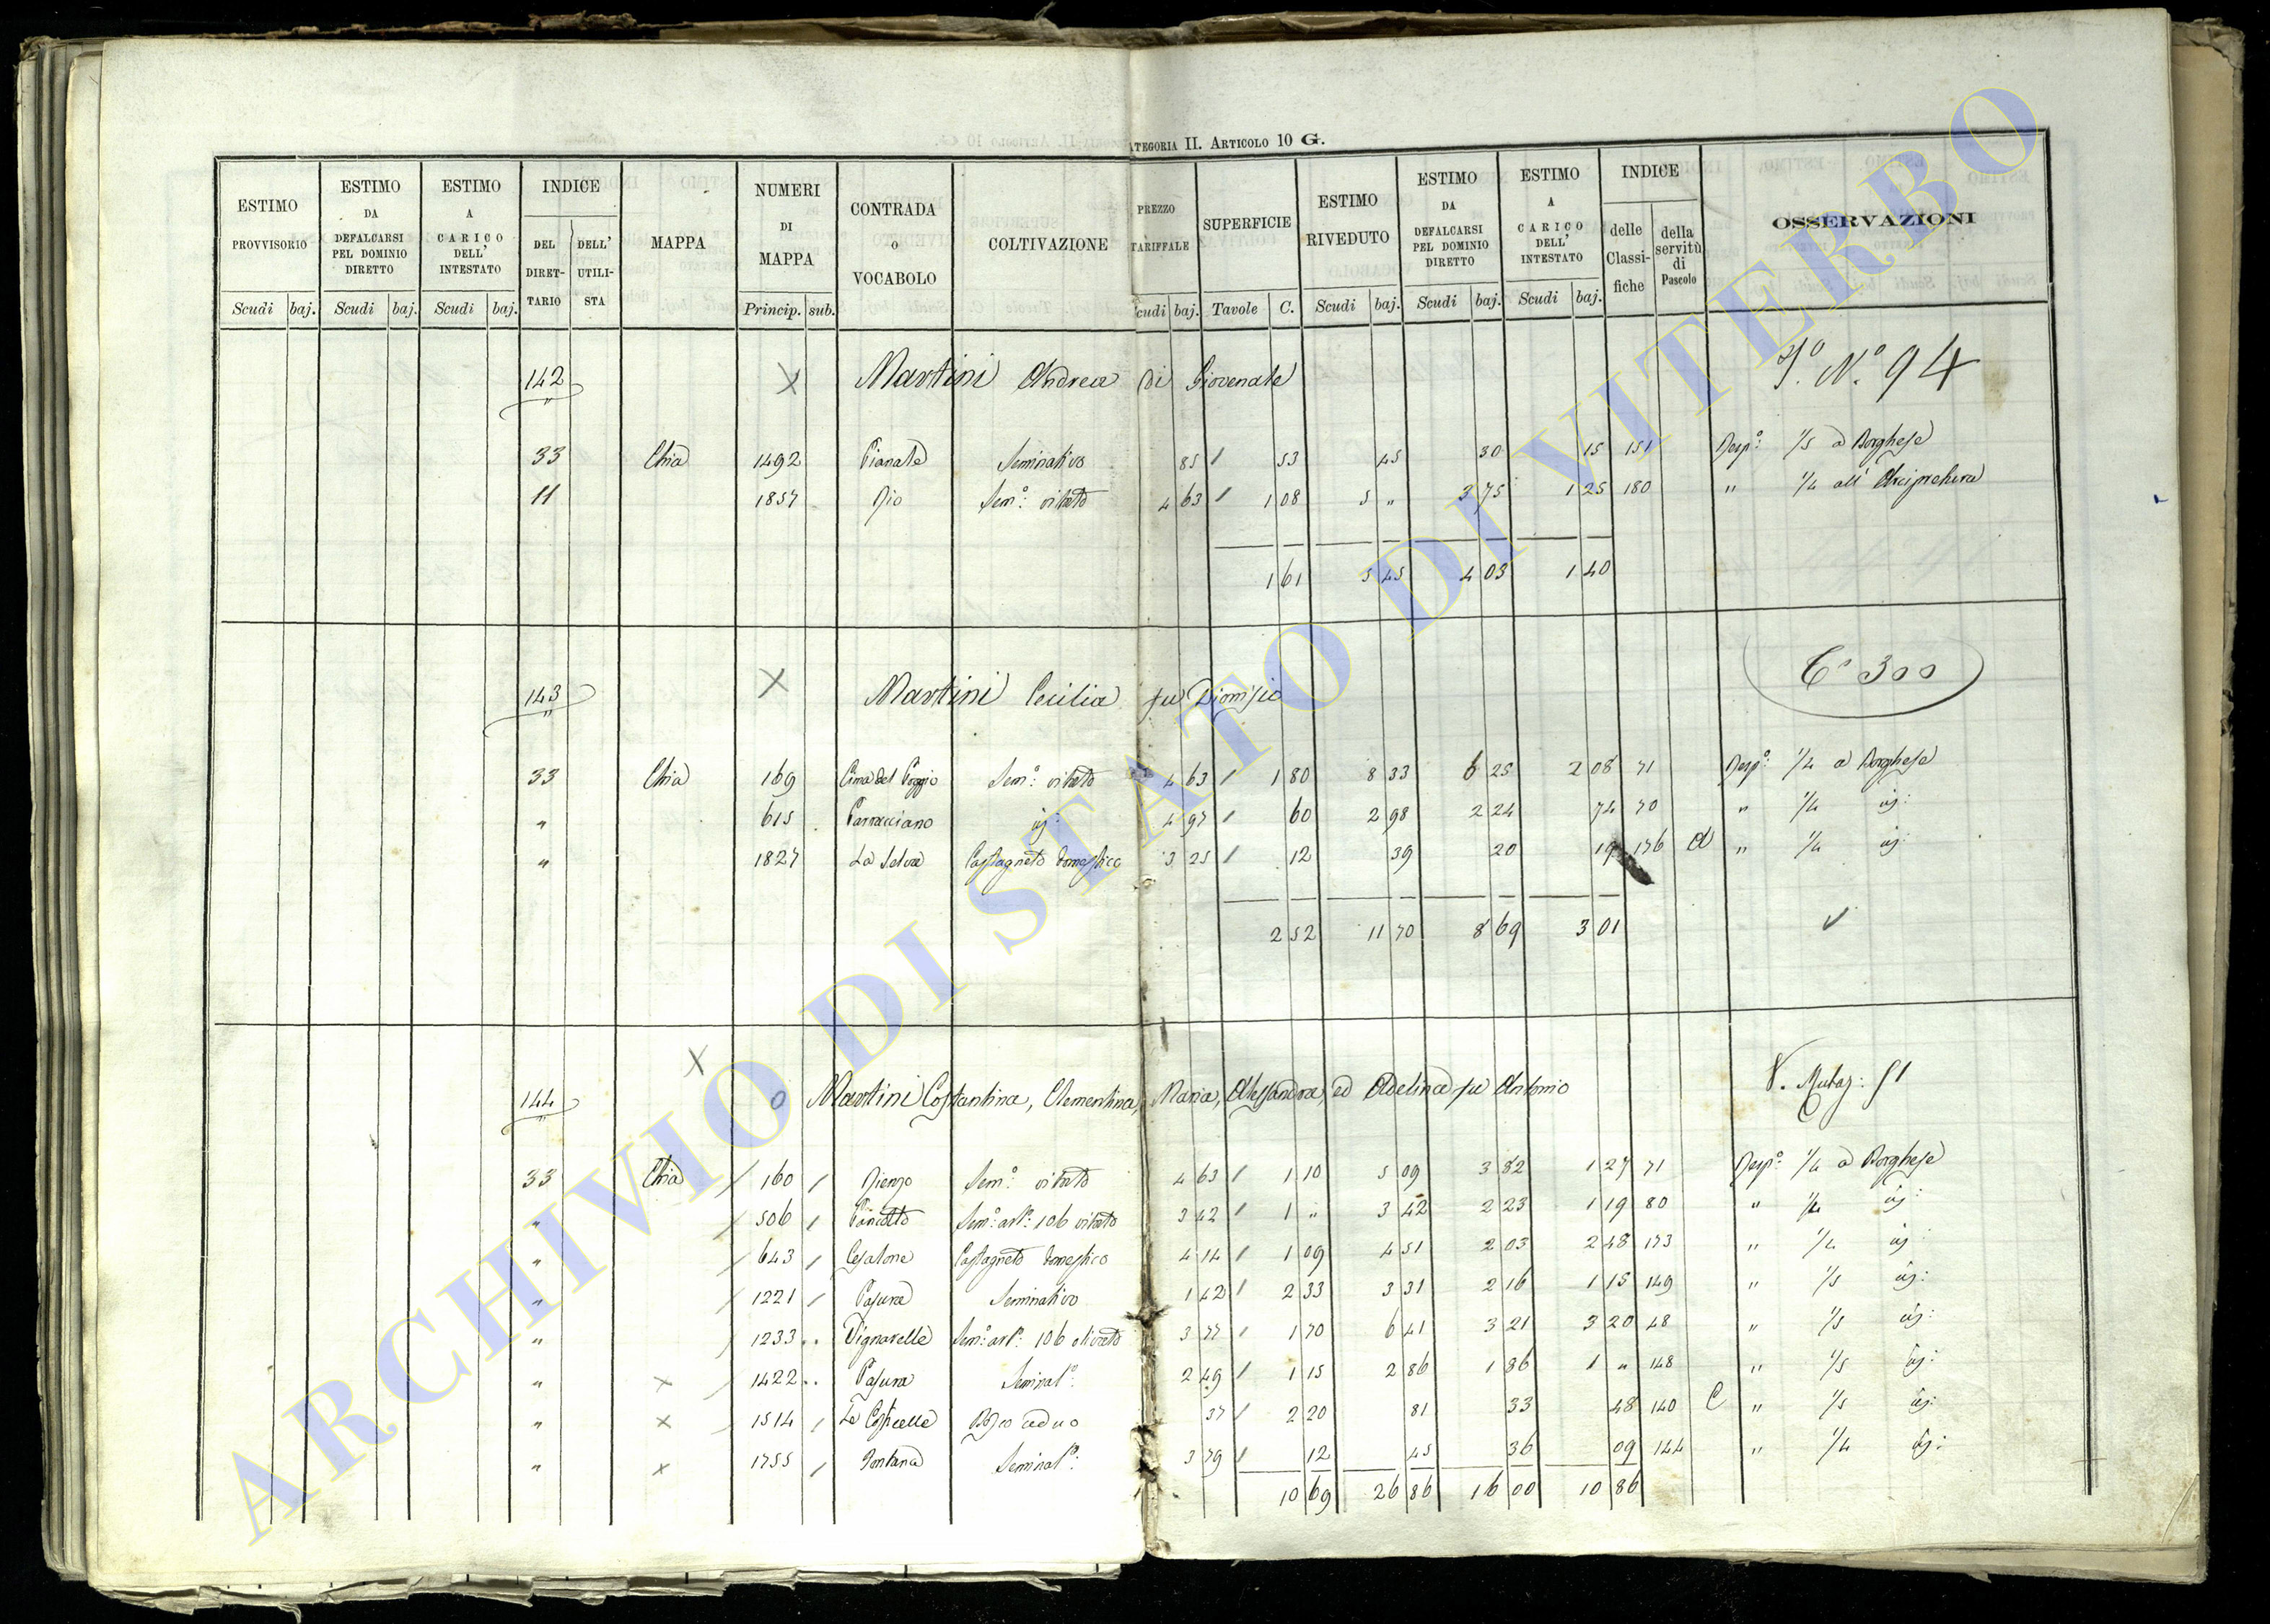 CATEGORIA II. ARTICOLO 10 G.
ESTIMO PROVVISORIO Scudi baj. | ESTIMO DA DEFALCARSI PEL DOMINIO DIRETTO Scudi baj. | ESTIMO A CARICO DELL' INTESTATO Scudi baj. | INDICE DEL DIRET-TARIO DELL' UTILI-STA | MAPPA | NUMERI DI MAPPA Princip. sub. | CONTRADA o VOCABOLO | COLTIVAZIONE | PREZZO TARIFFALE cudi baj. | SUPERFICIE Tavole C. | ESTIMO RIVEDUTO Scudi baj. | ESTIMO DA DEFALCARSI PEL DOMINIO DIRETTO Scudi baj. | ESTIMO A CARICO DELL' INTESTATO Scudi baj. | INDICE delle Classi-fiche della servitù di Pascolo | OSSERVAZIONI
142 X Martini Andrea di Giovenale Pº. Nº. 94
33 Chia 1492 Pianale Seminativo 85 / 53 45 30 15 151 Risp.º: 1/5 a Borghese
11 1857 Rio Sem.º: vitato 4 63 / 1 08 5 " 3 75 1 25 180 " 1/4 all' Arcipretura
1 61 5 45 4 03 1 40
143 X Martini Cecilia fu Dionisio Cº 300
33 Chia 169 Cima del Poggio Sem.º: vitato 4 63 / 1 80 8 33 6 25 2 08 71 Risp.º: 1/4 a Borghese
" 615 Parracciano id: 4 97 / 60 2 98 2 24 74 70 " 1/4 id:
" 1827 La Selva Castagneto domestico 3 25 / 12 39 20 19 176 A " 1/4 id:
2 52 11 70 8 69 3 01 ✓
X
144 0 Martini Costantina, Clementina, Maria, Alessandra, ed Adelina fu Antonio V. Mutaz: 51
33 Chia / 160 / Rienzo Sem.º: vitato 4 63 / 1 10 5 09 3 82 1 27 71 Risp.º: 1/4 a Borghese
" / 506 / Poricetto Sem.º: art.º: 106 vitato 3 42 / 1 " 3 42 2 23 1 19 80 " 1/4 id:
" / 643 / Cesalone Castagneto domestico 4 14 / 1 09 4 51 2 03 2 48 173 " 1/4 id
" / 1221 / Pasura Seminativo 1 42 / 2 33 3 31 2 16 1 15 149 " 1/5 id:
" / 1233 .. Vignarelle Sem.º: art.º: 106 olivato 3 77 / 1 70 6 41 3 21 3 20 48 " 1/5 id:
" X / 1422 .. Pasura Seminat.º: 2 49 / 1 15 2 86 1 86 1 " 148 " 1/5 id:
" X / 1514 / Le Costicelle Bosco ceduo 37 / 2 20 81 33 48 140 C " 1/5 id:
" X 1755 / Fontana Seminat.º: 3 79 / 12 45 36 09 144 " 1/4 id:
10 69 26 86 16 00 10 86
ARCHIVIO DI STATO DI VITERBO